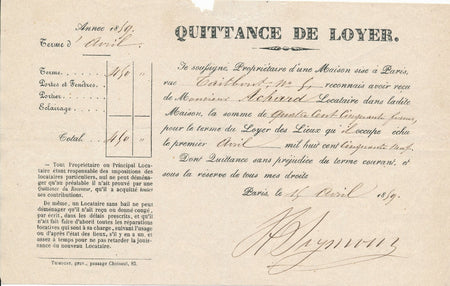 Année 1859.
Terme d' Avril.
Terme. . . . 450 "
Portes et Fenêtres. "
Portier. . . . "
Eclairage. . . . "
Total. . . 450 "
— Tout Propriétaire ou Principal Loca-
taire étant responsable des impositions des
locataires particuliers, nul ne peut déména-
ger qu'au préalable il n'ait prouvé par une
Quittance du Receveur, qu'il a acquitté toutes
ses contributions.
De même, un Locataire sans bail ne peut
déménager qu'il n'ait reçu ou donné congé,
par écrit, dans les délais prescrits, et qu'il
n'ait fait faire d'abord toutes les réparations
locatives qui sont à sa charge, suivant l'usage
ou d'après l'état des lieux, s'il y en a un,
et assez à temps pour ne pas retarder la jouis-
sance du nouveau Locataire.
passage Choiseul,
QUITTANCE DE LOYER.
Je soussigné, Propriétaire d'une Maison sise à Paris,
rue Taitbout No reconnais avoir reçu
de Monsieur Achard Locataire dans ladite
Maison, la somme de Quatre Cent Cinquante francs,
pour le terme du Loyer des Lieux qu'il occupe échu
le premier Avril mil huit cent Cinquante neuf.
Dont Quittance sans préjudice du terme courant, et
sous la réserve de tous mes droits
Paris, le 15 Avril 1859.